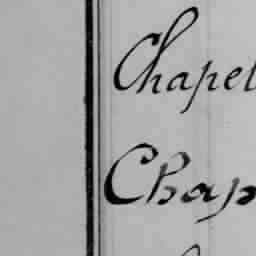 Chapel
Chap